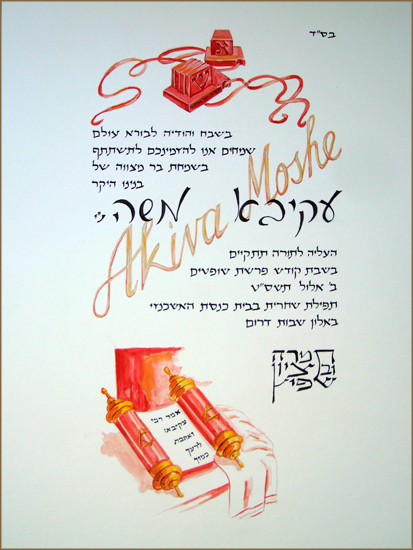 בס"ד
בשבח והודיה לבורא עולם
שמחים אנו להזמינכם להשתתף
בשמחת בר מצווה של
בנינו היקר
עקיבא משה נ"י
Akiva Moshe
העליה לתורה תתקיים
בשבת קודש פרשת שופטים
ב' אלול תשס"ט
תפילת שחרית בבית כנסת האשכנזי
באלון שבות דרום
ציון
שפיץ
אמר רבי
עקיבא:
ואהבת
לרעך
כמוך